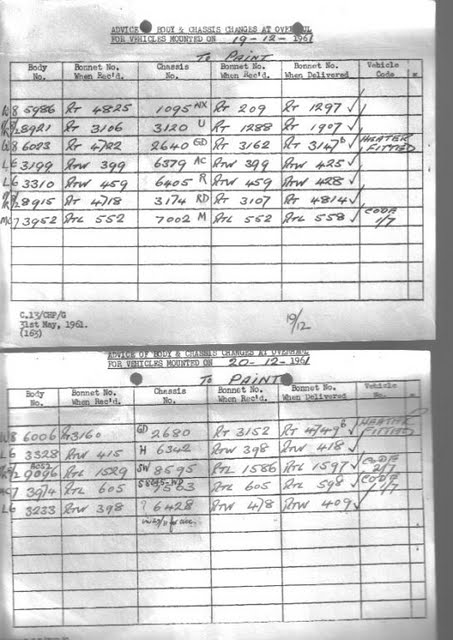 ADVICE OF BODY & CHASSIS CHANGES AT OVERHAUL
FOR VEHICLES MOUNTED ON 19-12-1961
To PAINT
Body No. Bonnet No. When Rec'd. Chassis No. Bonnet No. When Rec'd. Bonnet No. When Delivered Vehicle Code
W8 5986 RT 4825 1095 NX RT 209 RT 1297 ✓
8921 RT 3106 3120 U RT 1288 RT 1907 ✓
6023 RT 4722 2640 GD RT 3162 RT 3147 B ✓ HEATER FITTED
L6 3199 RTW 399 6379 AC RTW 399 RTW 425 ✓
L6 3310 RTW 459 6405 R RTW 459 RTW 428 ✓
8915 RT 4718 3174 RD RT 3107 RT 4814 ✓
MC7 3952 RTL 552 7002 M RTL 552 RTL 558 ✓ CODE 1/7
C.13/CHF/G
31st May, 1961.
(163)
19/12
ADVICE OF BODY & CHASSIS CHANGES AT OVERHAUL
FOR VEHICLES MOUNTED ON 20-12-1961
To PAINT
Body No. Bonnet No. When Rec'd. Chassis No. Bonnet No. When Rec'd. Bonnet No. When Delivered Vehicle No.
W8 6006 RT 3160 GD 2680 RT 3152 RT 4747 B ✓ HEATER FITTED
L6 3328 RTW 415 H 6342 RTW 398 RTW 418 ✓
9096 RTL 1529 SW 8595 RTL 1586 RTL 1597 ✓ CODE 2/7
MC7 3974 RTL 605 7563 RTL 605 RTL 598 ✓ CODE 1/7
L6 3233 RTW 398 ? 6428 RTW 478 RTW 409 ✓